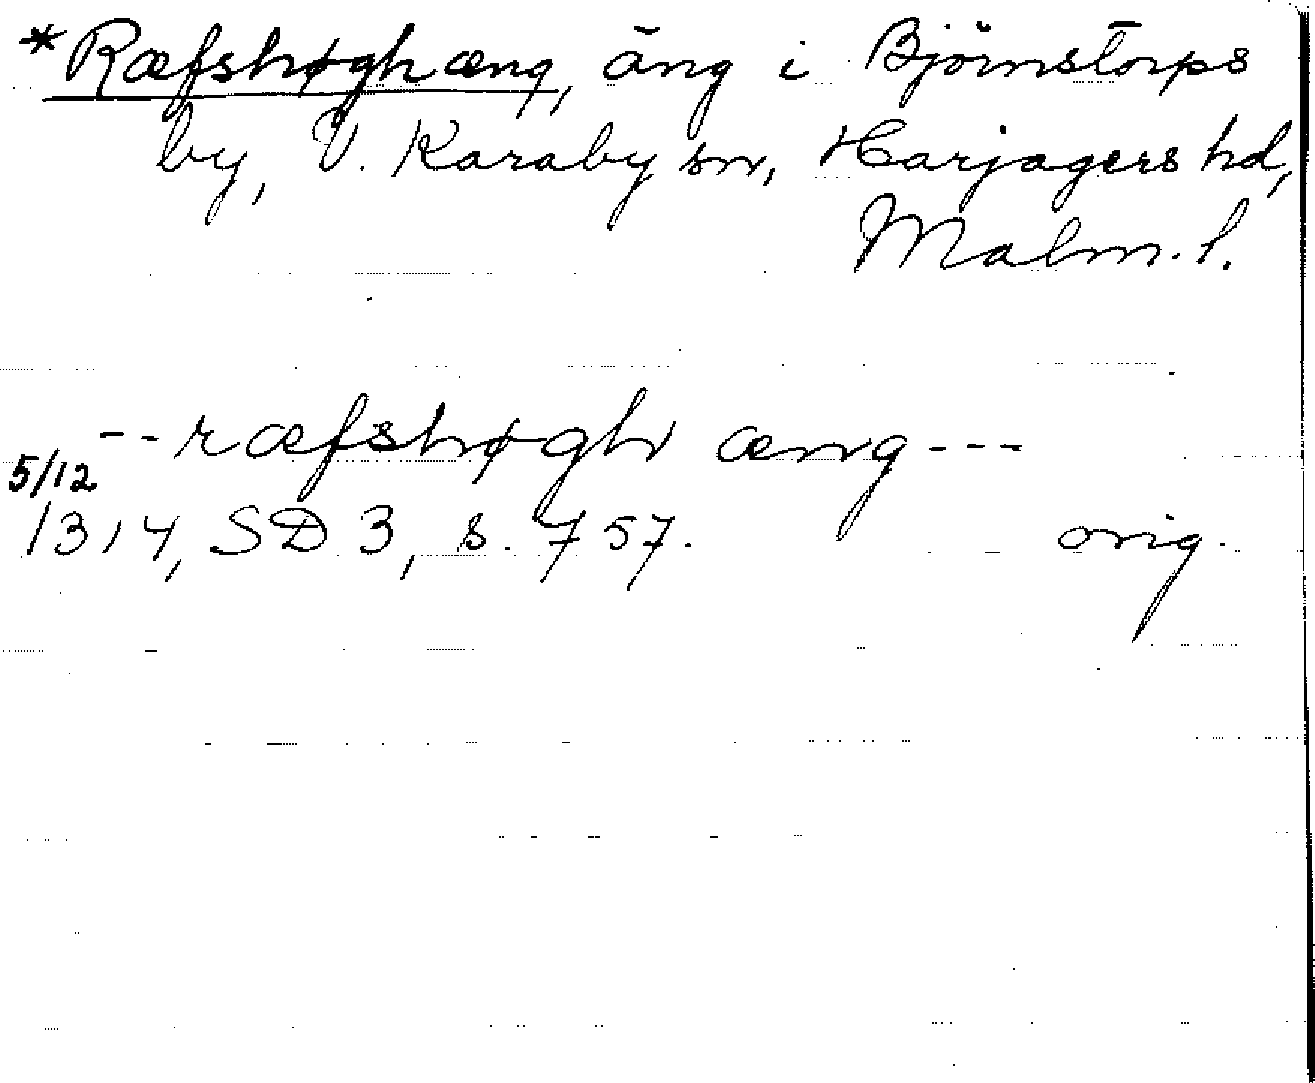 *Ræfshøghæng, äng i Björnstorps
by, V. Karaby sn, Harjagers hd,
Malm. l.
--ræfshøgh æng---
5/12
1314, SD 3, s. 757. orig.